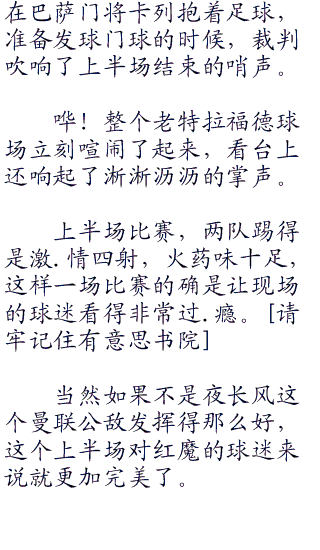 在巴萨门将卡列抱着足球，
准备发球门球的时候，裁判
吹响了上半场结束的哨声。
哗！整个老特拉福德球
场立刻喧闹了起来，看台上
还响起了淅淅沥沥的掌声。
上半场比赛，两队踢得
是激.情四射，火药味十足，
这样一场比赛的确是让现场
的球迷看得非常过.瘾。[请
牢记住有意思书院]
当然如果不是夜长风这
个曼联公敌发挥得那么好，
这个上半场对红魔的球迷来
说就更加完美了。